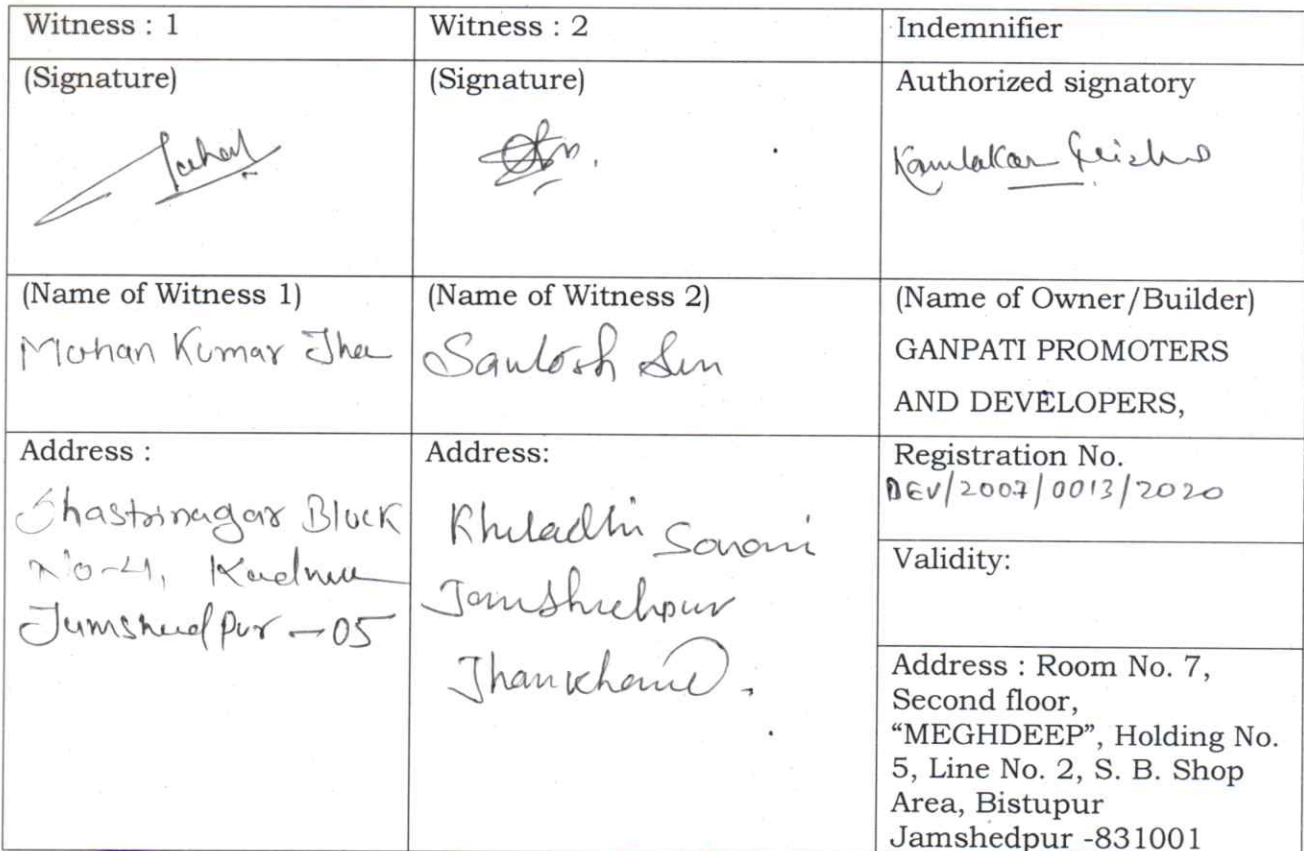 Witness : 1
Witness : 2
Indemnifier
(Signature)
(Signature)
Authorized signatory
Kamlakar
(Name of Witness 1)
Mohan Kumar Jha
(Name of Witness 2)
Santosh Sen
(Name of Owner/Builder)
GANPATI PROMOTERS
AND DEVELOPERS,
Address :
Shastrinagar Block
No-4, Kadma
Jamshedpur - 05
Address:
Sonari
Jamshedpur
Jharkhand.
Registration No.
DEV/2007/0013/2020
Validity:
Address : Room No. 7,
Second floor,
“MEGHDEEP”, Holding No.
5, Line No. 2, S. B. Shop
Area, Bistupur
Jamshedpur -831001